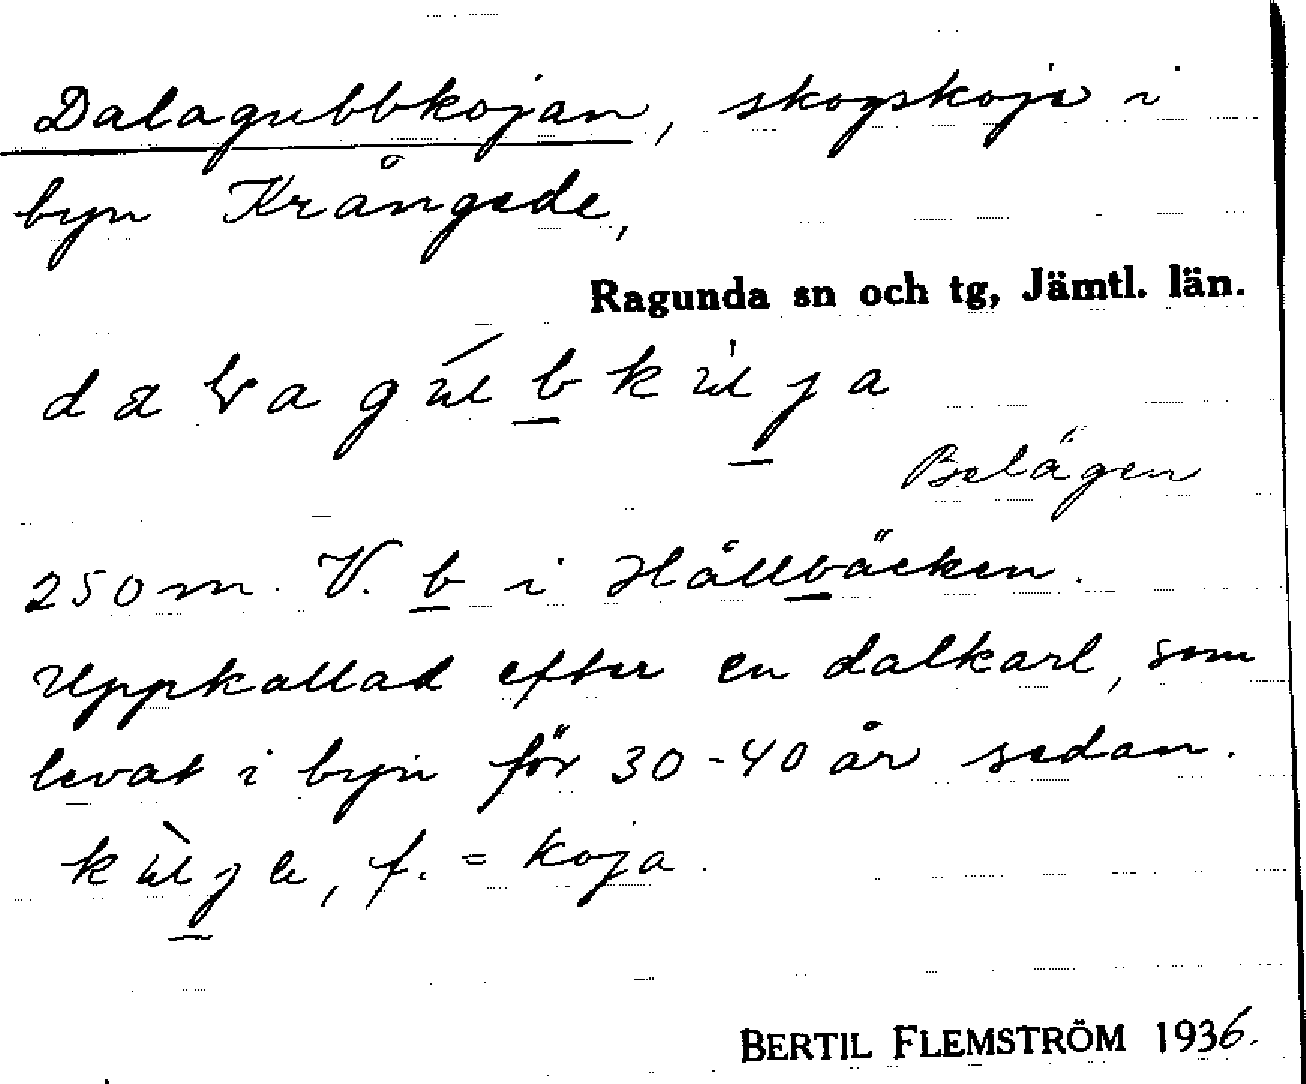 Dalagubbkojan, skogskoja i
byn Krångede,
Ragunda sn och tg, Jämtl. län.
Belägen
250 m. V. b i Hållbäcken.
Uppkallad efter en dalkarl, som
levat i byn för 30-40 år sedan.
f. = koja.
BERTIL FLEMSTRÖM 1936.